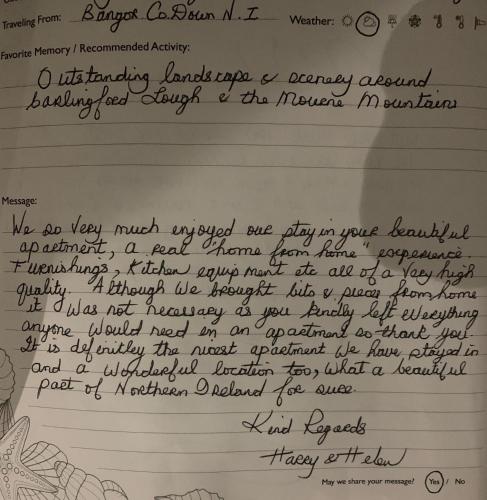 Traveling From: Bangor Co. Down N. I Weather:
Favorite Memory / Recommended Activity:
Outstanding landscape & scenery around
Carlingford Lough & the Mourne Mountains
Message:
We so very much enjoyed our stay in your beautiful
apartment, a real "home from home" experience.
Furnishings, Kitchen equipment etc all of a very high
quality. Although we brought bits & pieces from home
it was not necessary as you kindly left everything
anyone would need in an apartment so thank you.
It is definitley the nicest apartment we have stayed in
and a wonderful location too, what a beautiful
part of Northern Ireland for sure.
Kind Regards
Harry & Helen
May we share your message? Yes / No